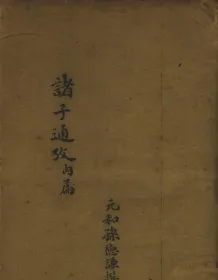 諸子通攷内篇
元和孫德謙